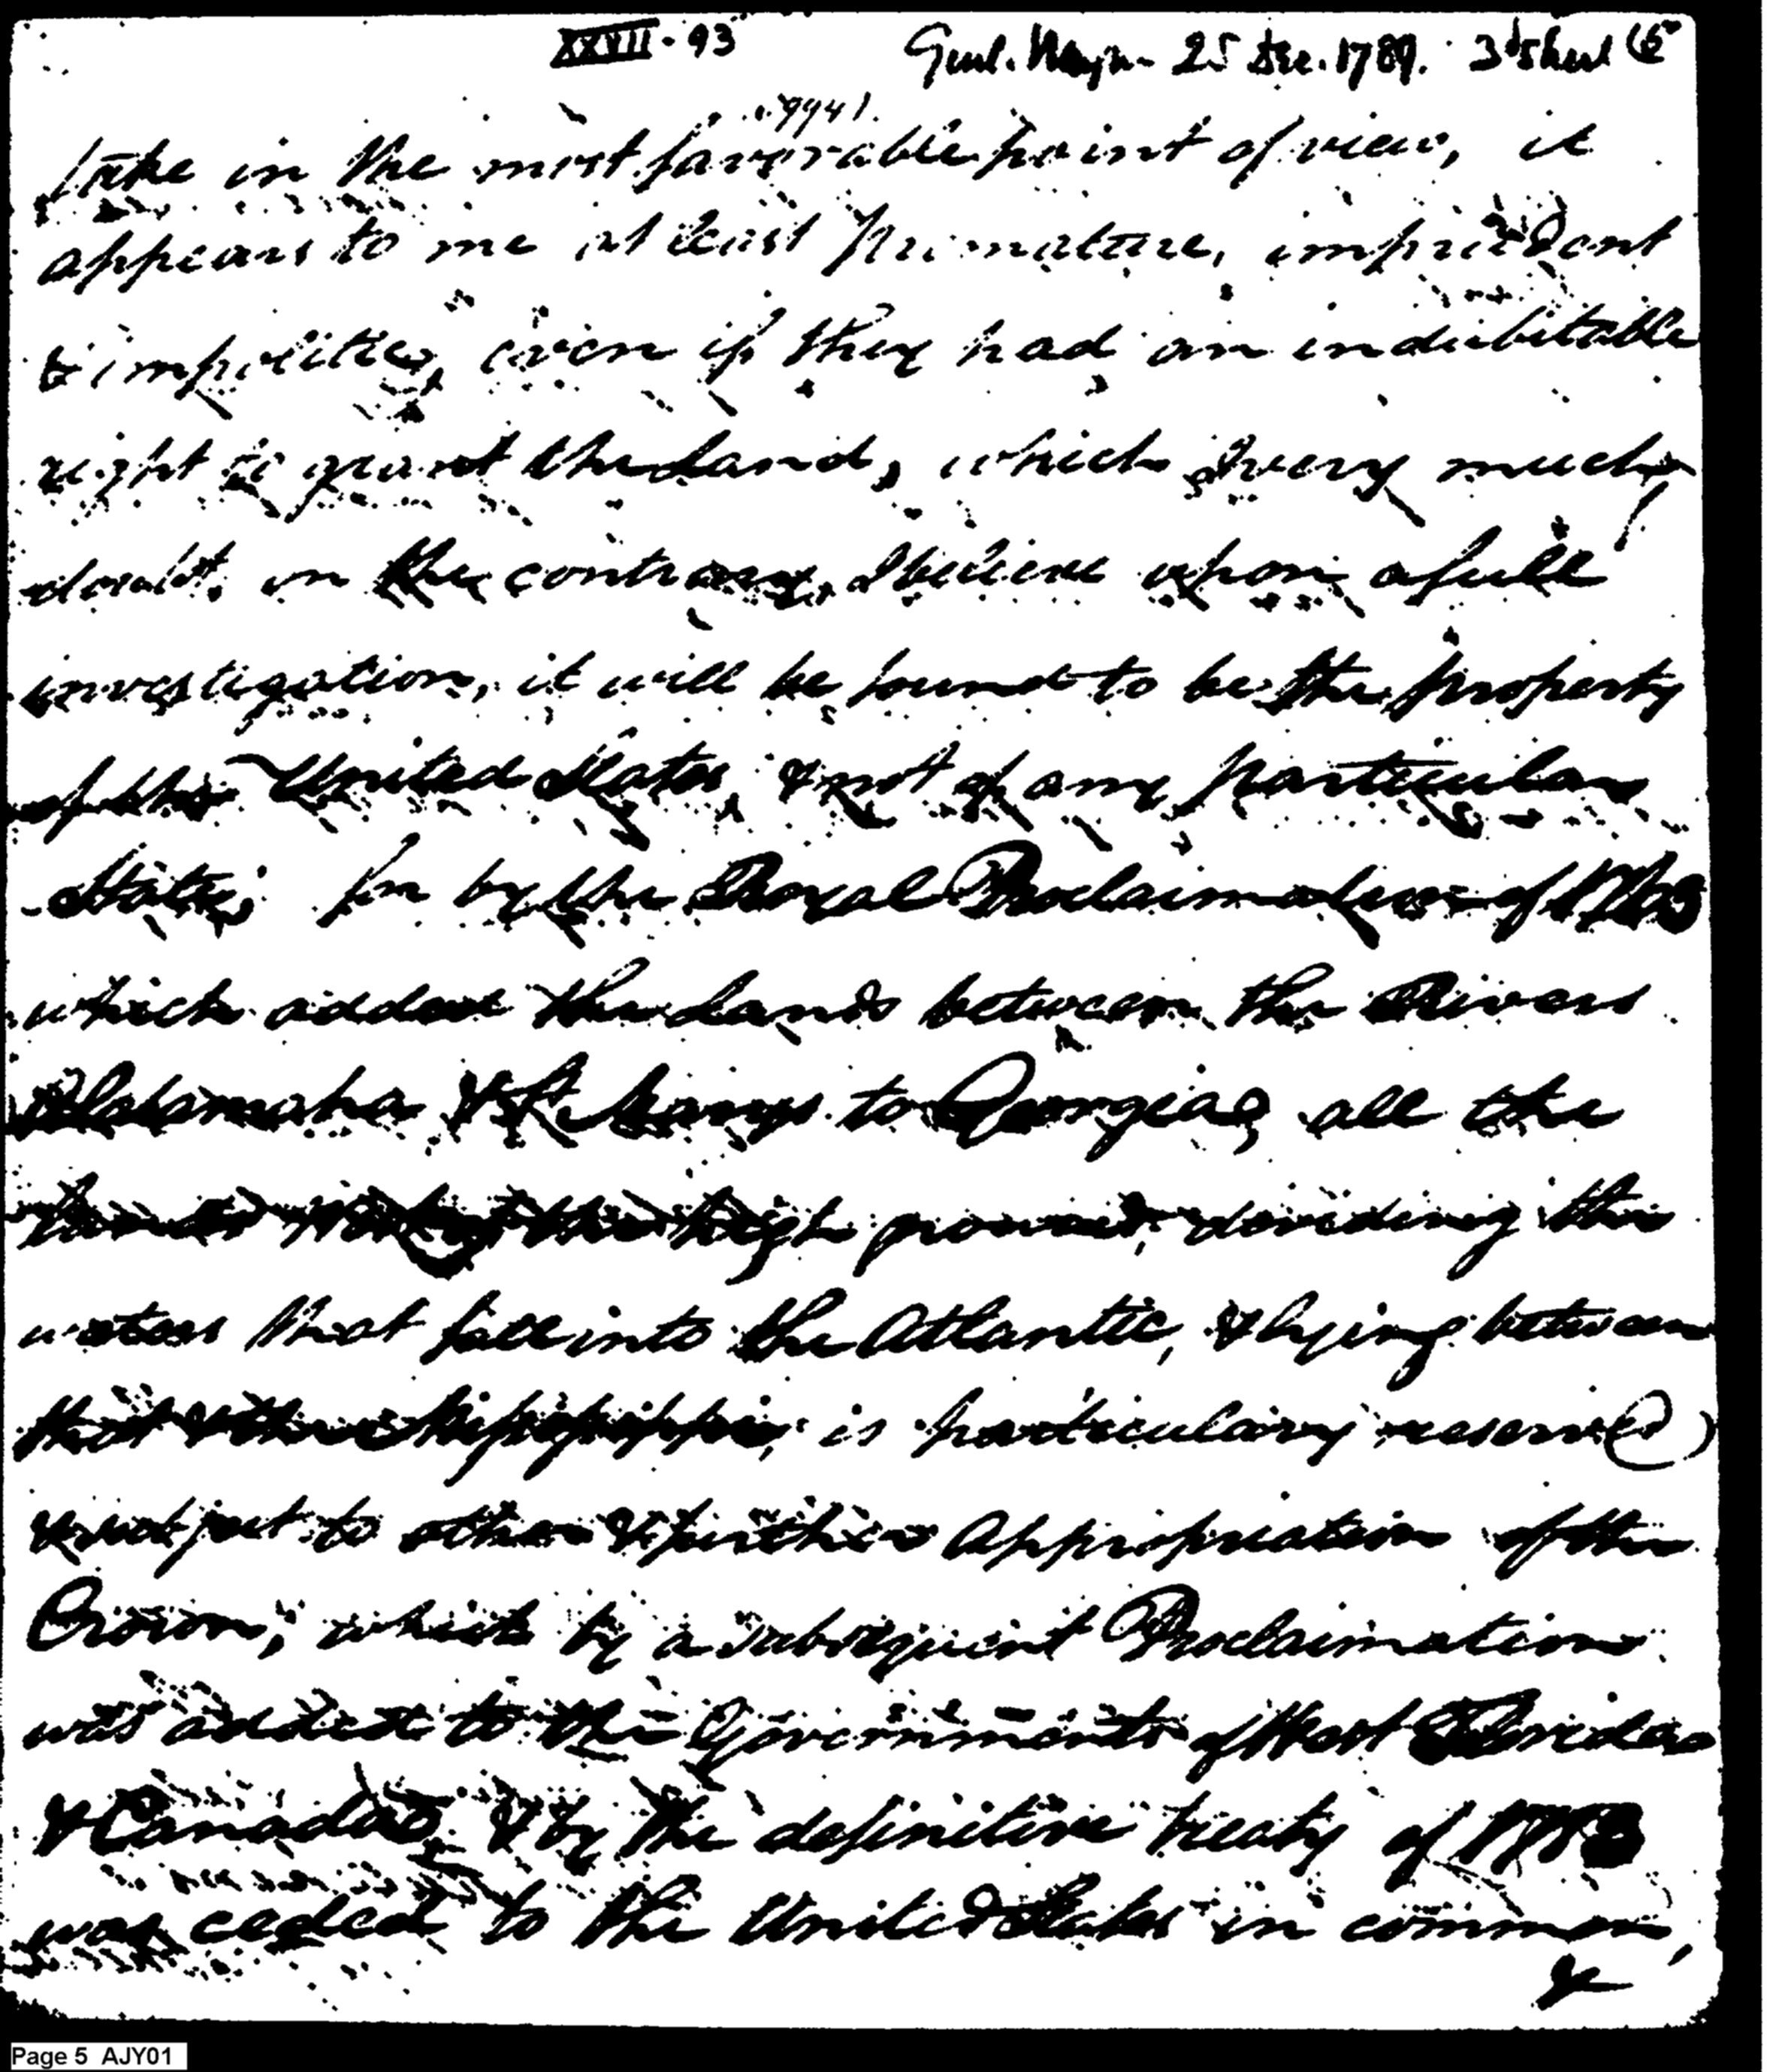 XXVII - 93
Genl. Wayne 25 Dec. 1789. 3d Sheet (5
take in the most favorable point of view, it
appears to me at least premature, imprudent
& impolitic, even if they had an indubitable
right to grant the Land, which I very much
doubt, on the contrary, I believe upon a full
investigation, it will be found to be the property
of the United States, & not of any particular
State; for by the Royal Proclaimation of 1763
which added the Lands between the Rivers
Alatamaha & St. Marys to Georgia, all the
Lands West of the high ground, deviding the
waters that fall into the Atlantic, & lying between
that & the Missisippi, is particulary reserved
& subject to other & further Appropriation of the
Crown; which by a subsequent Proclaimation
was added to the Governments of West Florida
& Canada, & by the definitive treaty of 1783
was ceded to the United States in common,
&
Page 5 AJY01